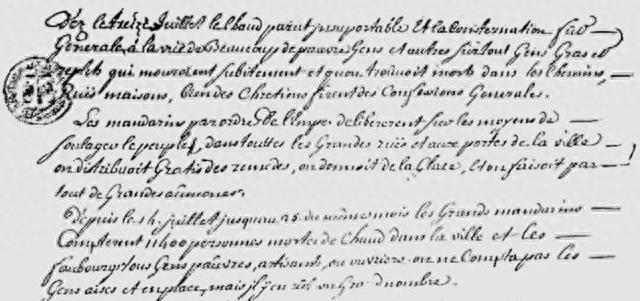 Déz le treize Juillet le chaud parut insuportable Et la Consternation fut
Generale, à la vüe de Beaucoup de pauvre Gens et autres surtout Gens Gras et
replets qui mouroient subitement et quon trouvoit morts dans les Chemins,
Ruës maisons, bien des Chretiens firent des Confessions Generales.
Les mandarins par ordre de l'Empe. delibererent sur les moyens de
soulager le peuple, dans touttes les Grandes rües et aux portes de la ville
on distribuoit Gratis des remedes, on donnoit de la Glace, et on faisoit par
tout de Grandes aumones.
Depuis le 14. Juillet jusquau 25. du même mois les Grands mandarins
Compterent 11400 personnes mortes de Chaud dans la ville et les
faubourgs tous Gens pauvres, artisants, ou ouvriers on ne Compta pas les
Gens aisés et en place, mais il y en eut un Gros nombre.